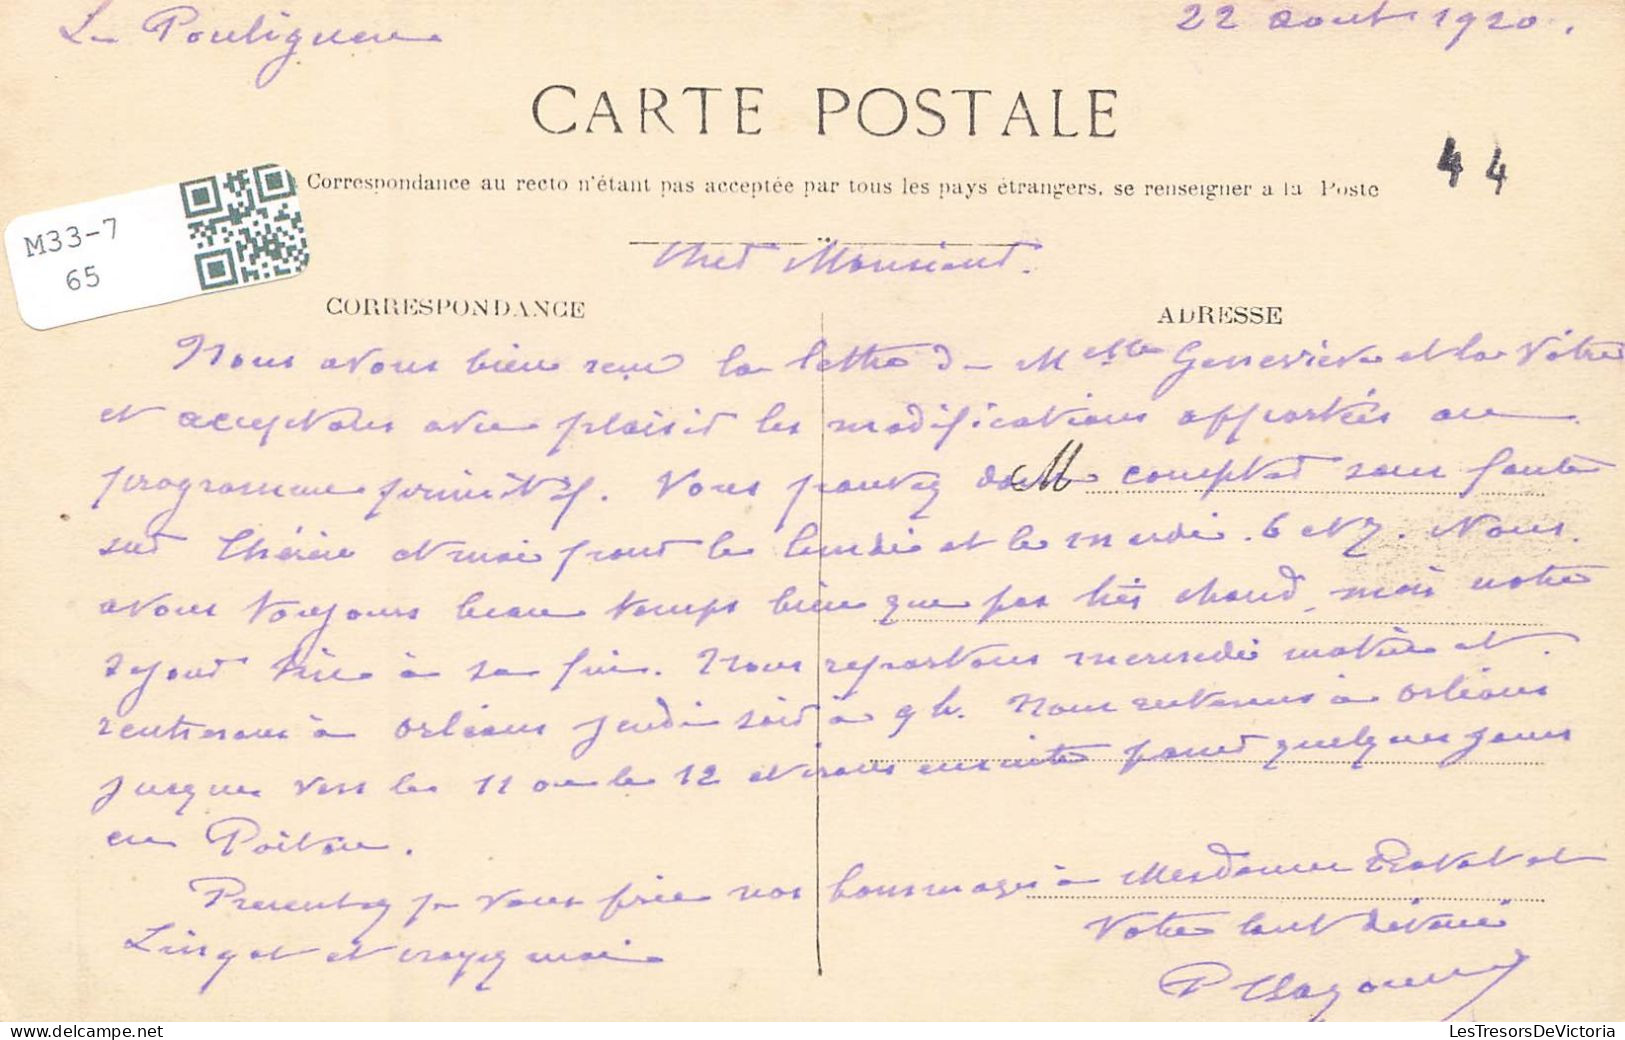 Le Pouliguen
22 août 1920.
CARTE POSTALE
Correspondance au recto n'étant pas acceptée par tous les pays étrangers, se renseigner a la Poste
44
M33-7
65
Cher Monsieur.
CORRESPONDANCE
ADRESSE
Nous avons bien reçu la lettre de Melle Geneviève et la Vôtre
et acceptons avec plaisir les modifications apportées au
programme primitif. Vous pouvez donc compter sans faute
sur Thérèse et moi pour le lundi et le mardi 6 et 7. Nous
avons toujours beau temps bien que pas très chaud, mais notre
séjour tire à sa fin. Nous repartons mercredi matin et
rentrerons à Orléans jeudi soir à 9 h. Nous resterons à Orléans
jusque vers le 11 ou le 12 et irons ensuite passer quelques jours
en Poitou.
Presentez je vous prie nos hommages à Mesdames et
Lingot et croyez moi
Votre tout dévoué
P
LesTresorsDeVictoria